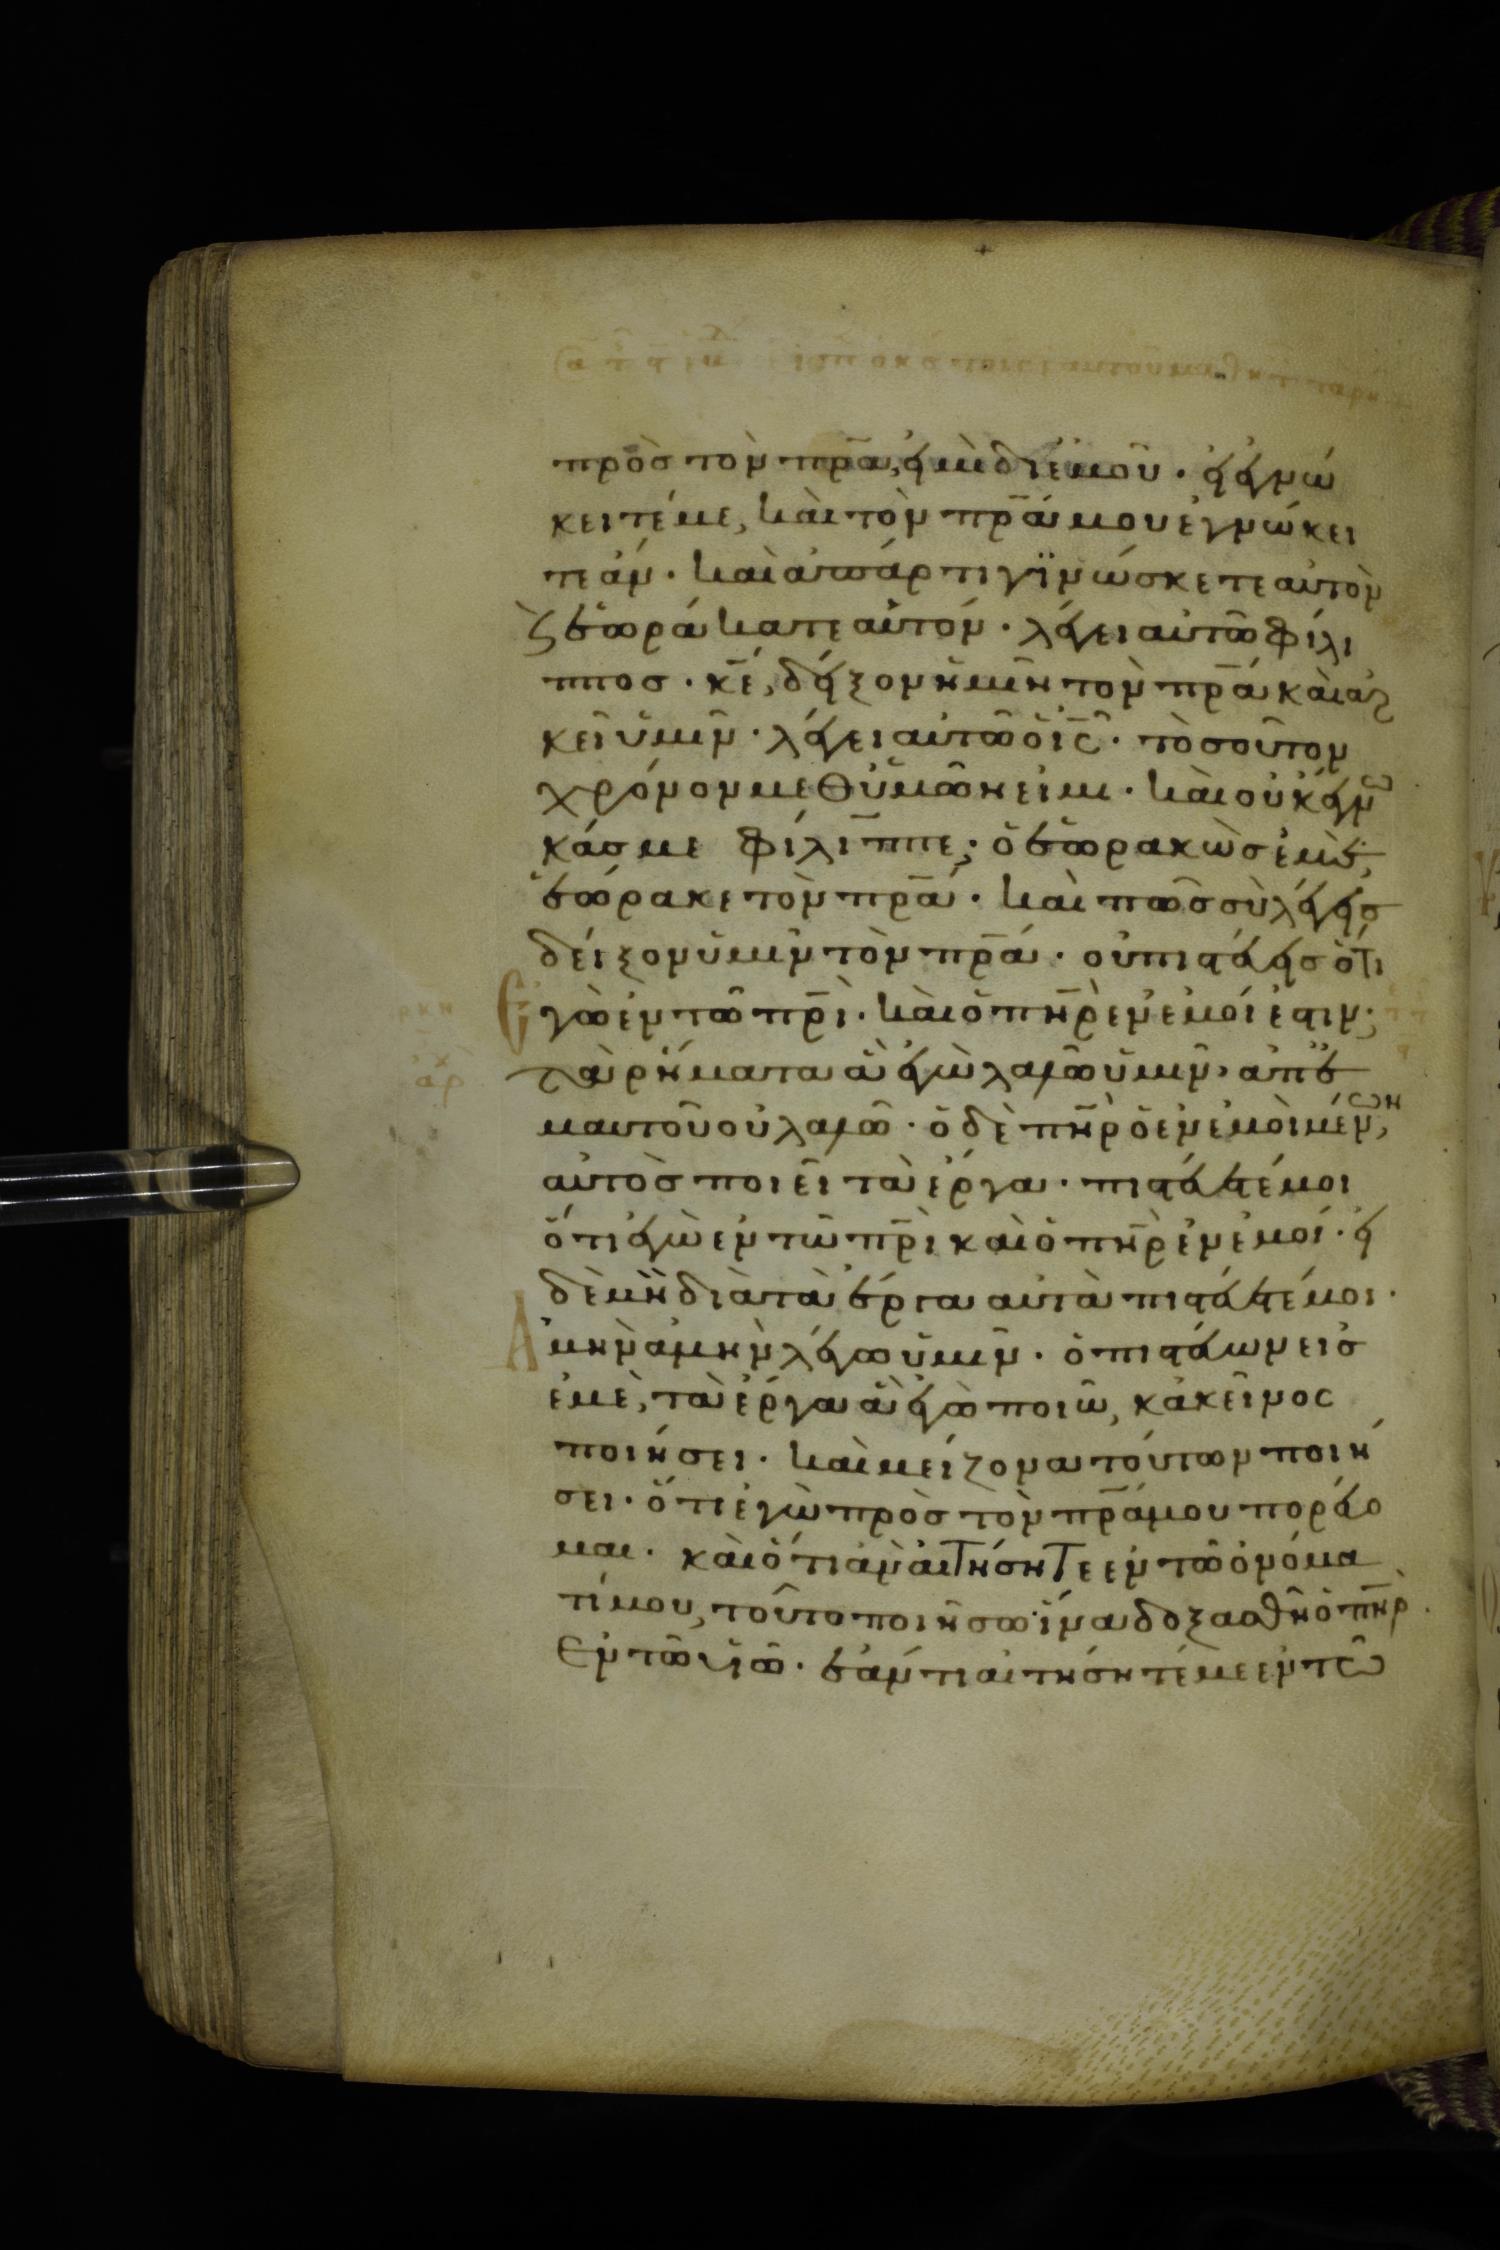 πρὸσ τὸν πρ̅α, εἰμὴ δι ἐμοῦ · εἰ ἐγνώ
κειτέ με, καὶ τὸν πρ̅α μου ἐγνώκει
τε ἄν · καὶ ἀπάρτι γϊνώσκετε αὐτὸν
ϗ ἑωράκατε αὐτόν · λέγει αὐτῶ φίλι
πποσ · κ̅ε, δεῖξον ἡμῖν τὸν πρ̅α καὶ ἀρ
κεῖ ὑμῖν · λέγει αὐτῶ ὁ ι̅ς · τὸσοῦτον
χρόνον μεθ ὑμῶν εἰμι · καὶ οὐκ ἔγνω
κάσ με φίλιππε; ὁ ἑωρακὼσ ἐμὲ,
ἑώρακε τὸν πρ̅α · καὶ πῶσ σὺ λέγεισ
δεῖξον ὑμῖν τὸν πρ̅α · οὐ πιστεύεισ ὅτι
Ἐγὼ ἐν τῶ πρ̅ι · καὶ ὁ πη̅ρ ἐν ἐμοί ἐστιν;
τὰ ῥήματα ἃ ἐγὼ λαλῶ ὑμῖν, ἀπ ἐ
μαυτοῦ οὐ λαλῶ · ὁ δὲ πη̅ρ ὁ ἐν ἐμοὶ μένων,
αὐτὸσ ποιεῖ τὰ ἔργα · πιστεύετέ μοι
ὅτι ἐγὼ ἐν τῶ πρ̅ι καὶ ὁ πη̅ρ ἐν ἐμοί · εἰ
δὲ μὴ διὰ τὰ ἔργα αὐτὰ πιστεύετέ μοι ·
Ἀμὴν ἀμὴν λέγω ὑμῖν · ὁ πιστεύων εἰσ
ἐμὲ, τὰ ἔργα ἃ ἐγὼ ποιῶ, κἀκεῖνος
ποιήσει · καὶ μείζονα τούτων ποιή
σει · ὅτι ἐγὼ πρὸσ τὸν πρ̅α μου πορεύο
μαι · καὶ ὅτι ἂν αἰτήσητε ἐν τῶ ὀνόμα
τί μου, τοῦτο ποιήσω· ἵνα δοξασθῆ ὁ πη̅ρ
ἐν τῶ υἱῶ · ἐάν τι αἰτήσητέ με ἐν τῶ